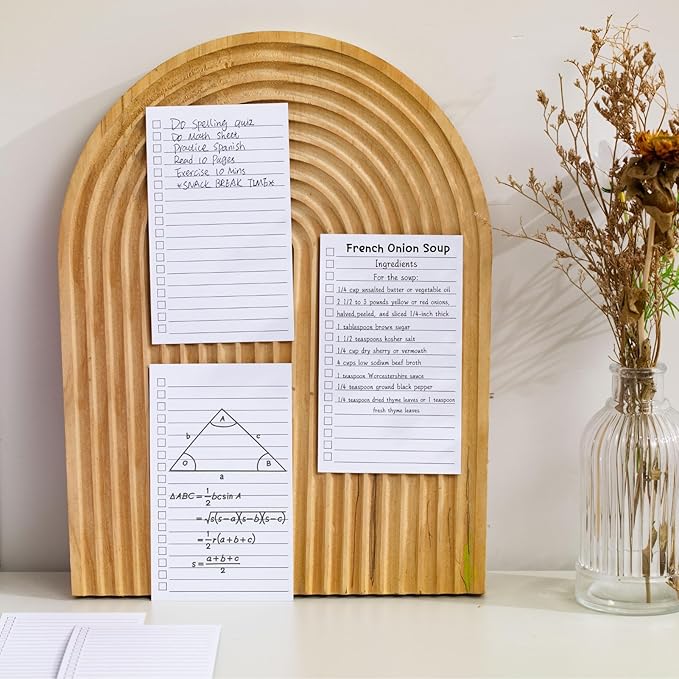 Do Spelling quiz
Do Math Sheet
Practice Spanish
Read 10 Pages
Exercise 10 Mins
*SNACK BREAK TIME*
French Onion Soup
Ingredients
For the soup:
1/4 cup unsalted butter or vegetable oil
2 1/2 to 3 pounds yellow or red onions,
halved,peeled, and sliced 1/4-inch thick
1 tablespoon brown sugar
1 1/2 teaspoons kosher salt
1/4 cup dry sherry or vermouth
4 cups low sodium beef broth
1 teaspoon Worcestershire sauce
1/4 teaspoon ground black pepper
1/4 teaspoon dried thyme leaves or 1 teaspoon
fresh thyme leaves
A
b c
B
a
△ABC = 1/2 bcsin A
= √s(s-a)(s-b)(s-c)
= 1/2 r(a+b+c)
s = a+b+c/2